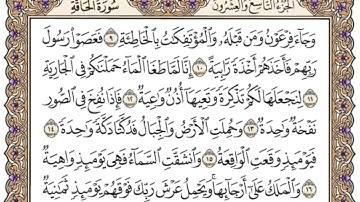 الجزء التاسع والعشرون سورة الحاقة
وَجَآءَ فِرْعَوْنُ وَمَن قَبْلَهُۥ وَٱلْمُؤْتَفِكَٰتُ بِٱلْخَاطِئَةِ ٩ فَعَصَوْا۟ رَسُولَ
رَبِّهِمْ فَأَخَذَهُمْ أَخْذَةً رَّابِيَةً ١٠ إِنَّا لَمَّا طَغَا ٱلْمَآءُ حَمَلْنَٰكُمْ فِى ٱلْجَارِيَةِ
١١ لِنَجْعَلَهَا لَكُمْ تَذْكِرَةً وَتَعِيَهَآ أُذُنٌ وَٰعِيَةٌ ١٢ فَإِذَا نُفِخَ فِى ٱلصُّورِ
نَفْخَةٌ وَٰحِدَةٌ ١٣ وَحُمِلَتِ ٱلْأَرْضُ وَٱلْجِبَالُ فَدُكَّتَا دَكَّةً وَٰحِدَةً ١٤
فَيَوْمَئِذٍ وَقَعَتِ ٱلْوَاقِعَةُ ١٥ وَٱنشَقَّتِ ٱلسَّمَآءُ فَهِىَ يَوْمَئِذٍ وَاهِيَةٌ
١٦ وَٱلْمَلَكُ عَلَىٰٓ أَرْجَآئِهَا وَيَحْمِلُ عَرْشَ رَبِّكَ فَوْقَهُمْ يَوْمَئِذٍ ثَمَٰنِيَةٌ